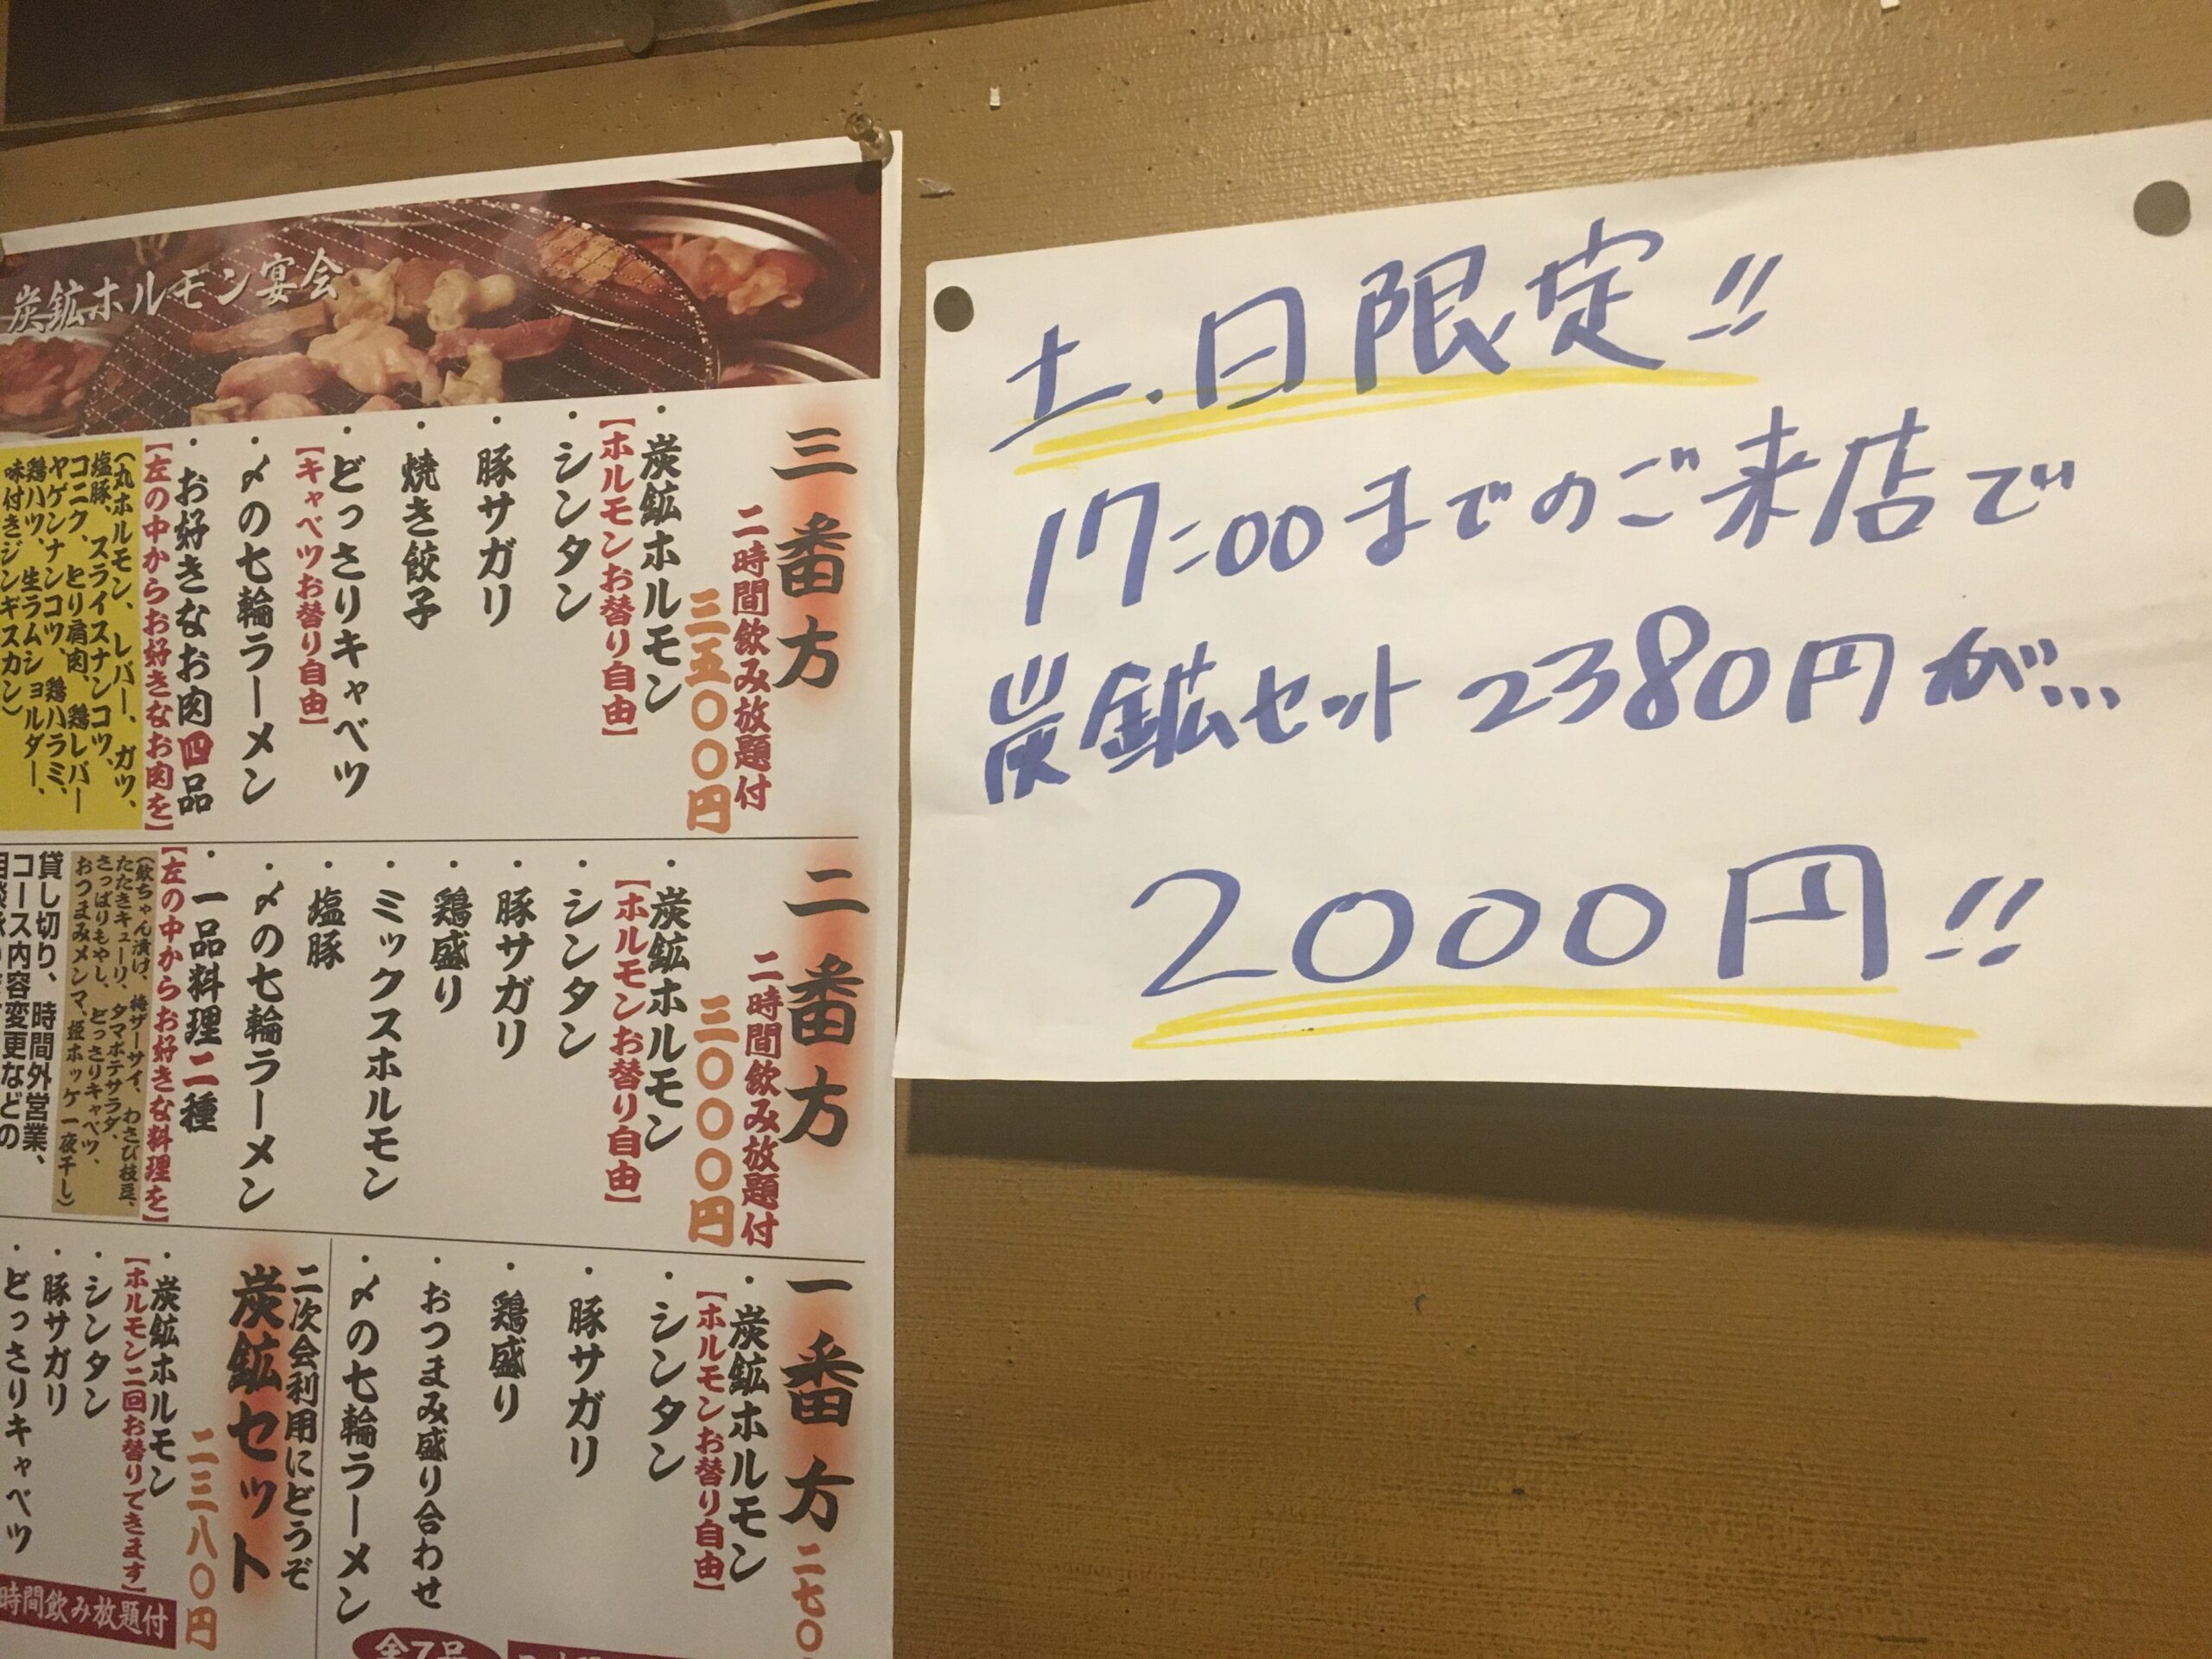 炭鉱ホルモン宴会
三番方
二時間飲み放題付
三五〇〇円
・炭鉱ホルモン
【ホルモンお替り自由】
・シンタン
・豚サガリ
・焼き餃子
・どっさりキャベツ
【キャベツお替り自由】
・〆の七輪ラーメン
・お好きなお肉四品
【左の中からお好きなお肉を】
(丸ホルモン、レバー、ガツ、
塩豚、スライスナンコツ、
コニク、とり肩肉、鶏レバー
ヤゲンナンコツ、鶏ハラミ、
鶏ハツ、生ラムショルダー、
味付きジンギスカン)
二番方
二時間飲み放題付
三〇〇〇円
・炭鉱ホルモン
【ホルモンお替り自由】
・シンタン
・豚サガリ
・鶏盛り
・ミックスホルモン
・塩豚
・〆の七輪ラーメン
・一品料理二種
【左の中からお好きな料理を】
(飲ちゃん漬け、梅ザーサイ、わさび枝豆、
たたきキューリ、タマポテサラダ、
さっぱりもやし、どっさりキャベツ、
おつまみメンマ、姫ホッケ一夜干し)
貸し切り、時間外営業、
コース内容変更などの
一番方
二七〇
・炭鉱ホルモン
【ホルモンお替り自由】
・シンタン
・豚サガリ
・鶏盛り
・おつまみ盛り合わせ
・〆の七輪ラーメン
全7品
二次会利用にどうぞ
炭鉱セット
二三八〇円
・炭鉱ホルモン
【ホルモン二回お替りできます】
・シンタン
・豚サガリ
・どっさりキャベツ
時間飲み放題付
土.日限定!!
17:00までのご来店で
炭鉱セット2380円が...
2000円!!